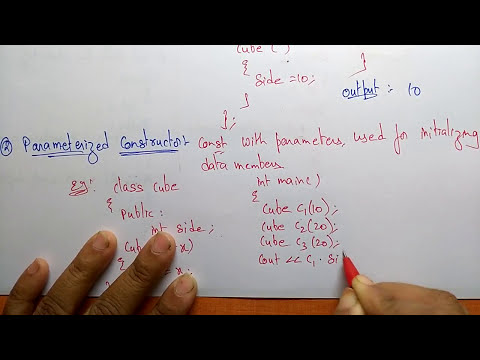 cube ( )
{
side = 10;
}
output :- 10
};
② Parameterized Constructor:- Const with parameters, used for initializing
data members.
Eg:- class cube
{
public:
int side;
x)
{
= x;
int main()
{
cube c1(10);
cube c2(20);
cube c3(20);
cout << c1. si